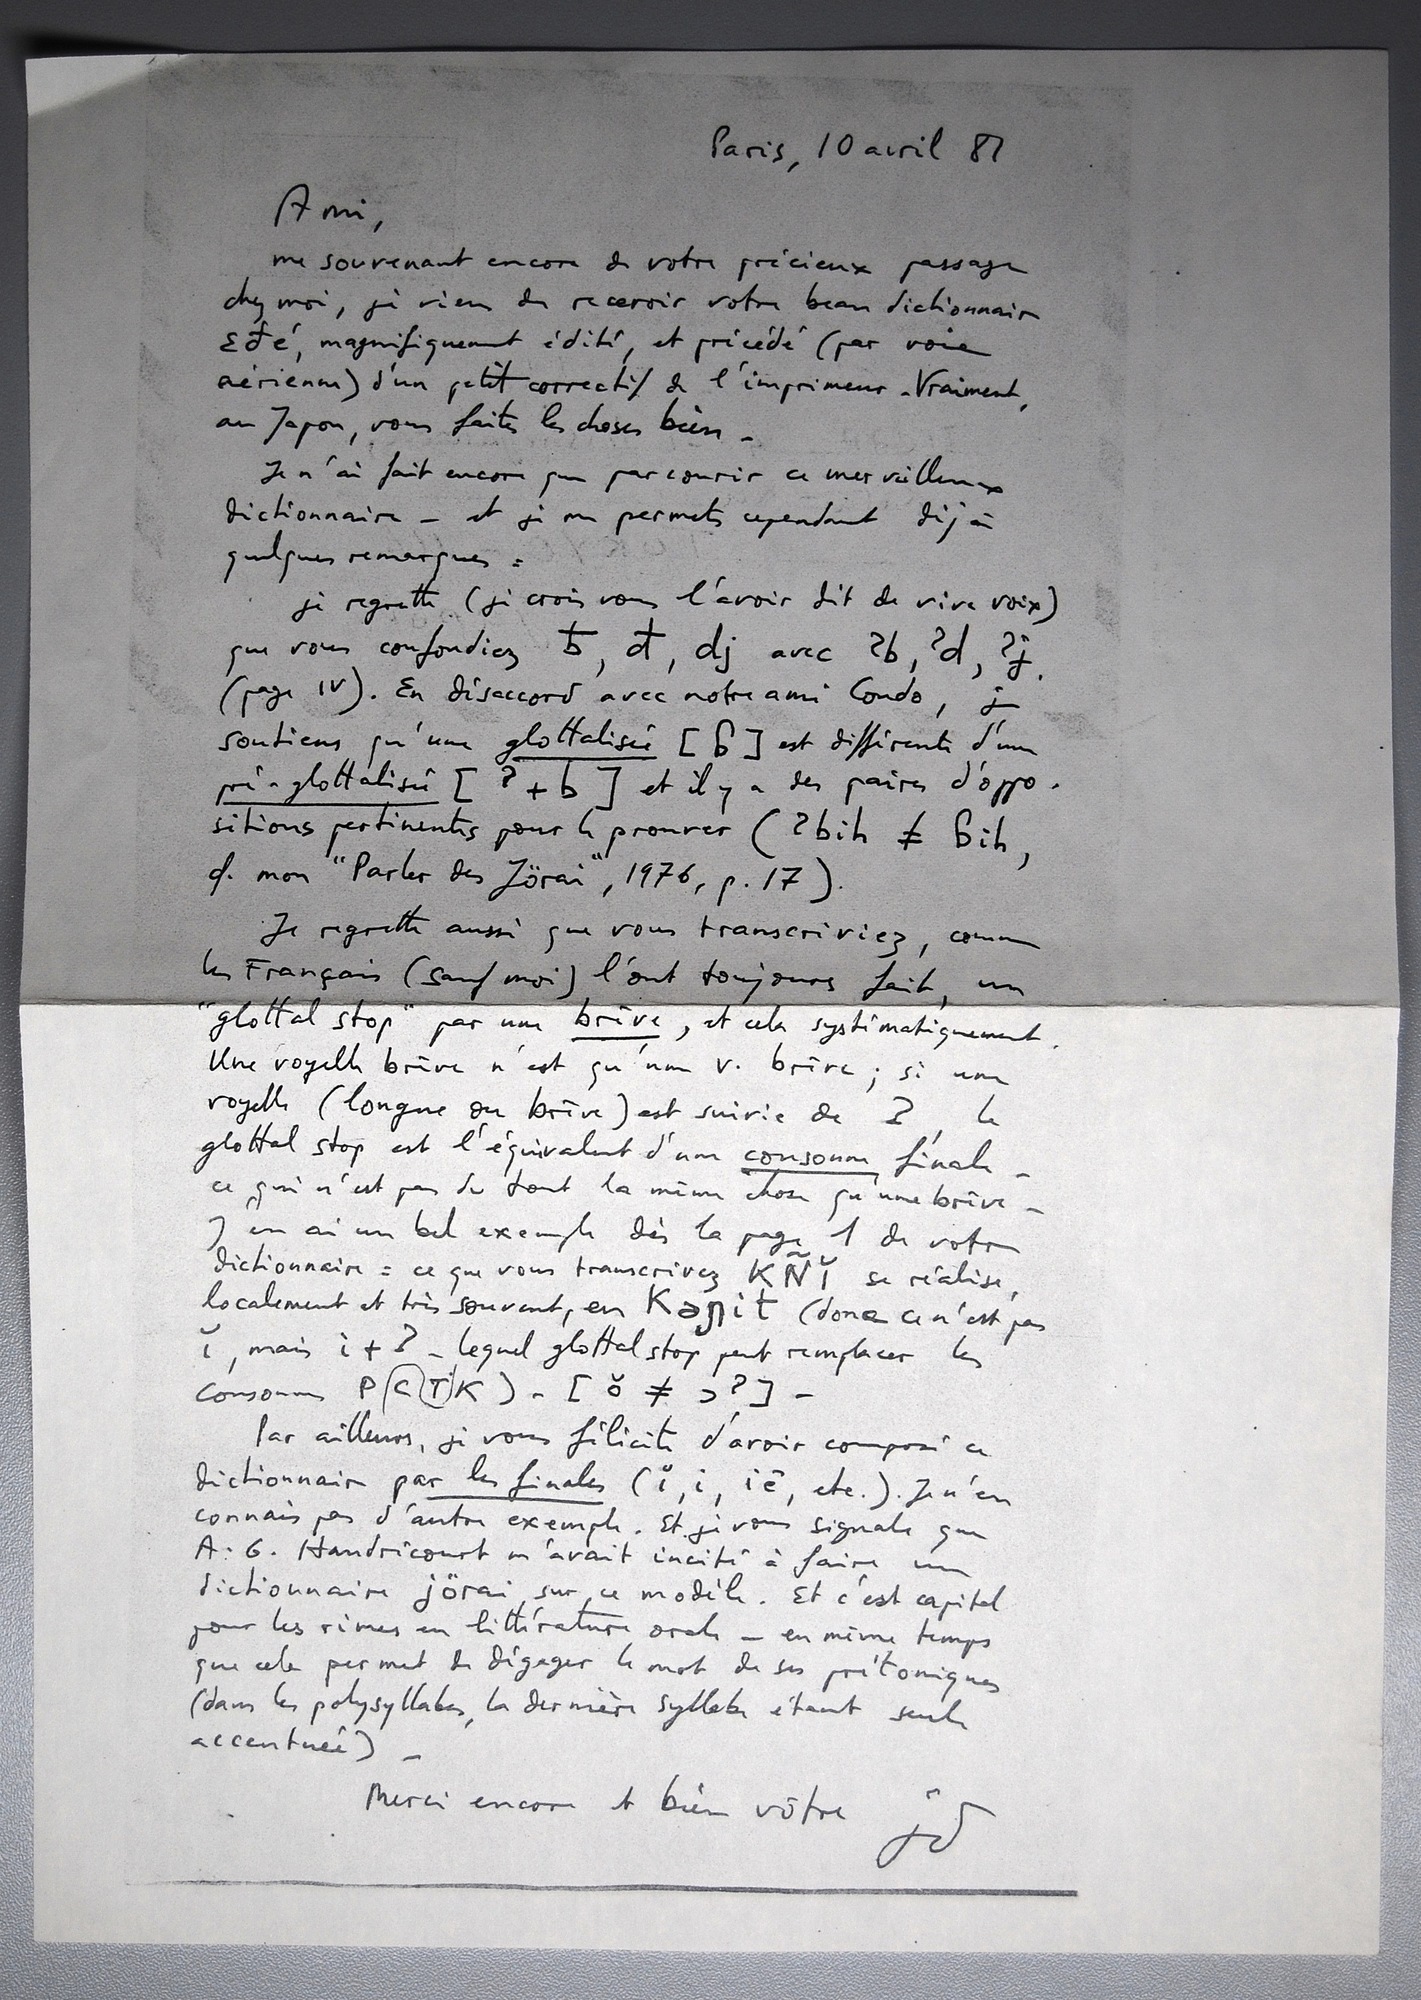 Paris, 10 avril 81
Ami,
me souvenant encore de votre précieux passage
chez moi, je viens de recevoir votre beau dictionnaire
Eđé, magnifiquement édité, et précédé (par voie
aérienne) d'un petit correctif de l'imprimeur - Vraiment,
au Japon, vous faites les choses bien -
Je n'ai fait encore que parcourir ce merveilleux
dictionnaire - et je me permets cependant déjà
quelques remarques :
je regrette (je crois vous l'avoir dit de vive voix)
que vous confondiez ƀ, đ, dj avec ʔb, ʔd, ʔj.
(page IV). En désaccord avec notre ami Condo, je
soutiens qu'une glottalisée [ɓ] est différente d'une
pré-glottalisée [ʔ+b] et il y a des paires d'oppo-
sitions pertinentes pour le prouver (ʔbih ≠ ɓih,
cf. mon "Parler des Jörai", 1976, p. 17).
Je regrette aussi que vous transcriviez, comme
les Français (sauf moi) l'ont toujours fait, un
"glottal stop" par une brève, et cela systématiquement.
Une voyelle brève n'est qu'une v. brève ; si une
voyelle (longue ou brève) est suivie de ʔ, le
glottal stop est l'équivalent d'une consonne finale -
ce qui n'est pas du tout la même chose qu'une brève -
J'en ai un bel exemple dès la page 1 de votre
dictionnaire : ce que vous transcrivez KÑĬ se réalise,
localement et très souvent, en Kəɲit (donc ce n'est pas
ĭ, mais i + ʔ - lequel glottal stop peut remplacer les
consonnes P C T K) - [ŏ ≠ ɔʔ] -
Par ailleurs, je vous félicite d'avoir composé ce
dictionnaire par les finales (ĭ, i, iê, etc.). Je n'en
connais pas d'autre exemple. Et je vous signale que
A. G. Haudricourt m'avait incité à faire un
dictionnaire jörai sur ce modèle. Et c'est capital
pour les rimes en littérature orale - en même temps
que cela permet de dégager le mot de ses prétoniques
(dans les polysyllabes, la dernière syllabe étant seule
accentuée) -
Merci encore et bien vôtre
jd